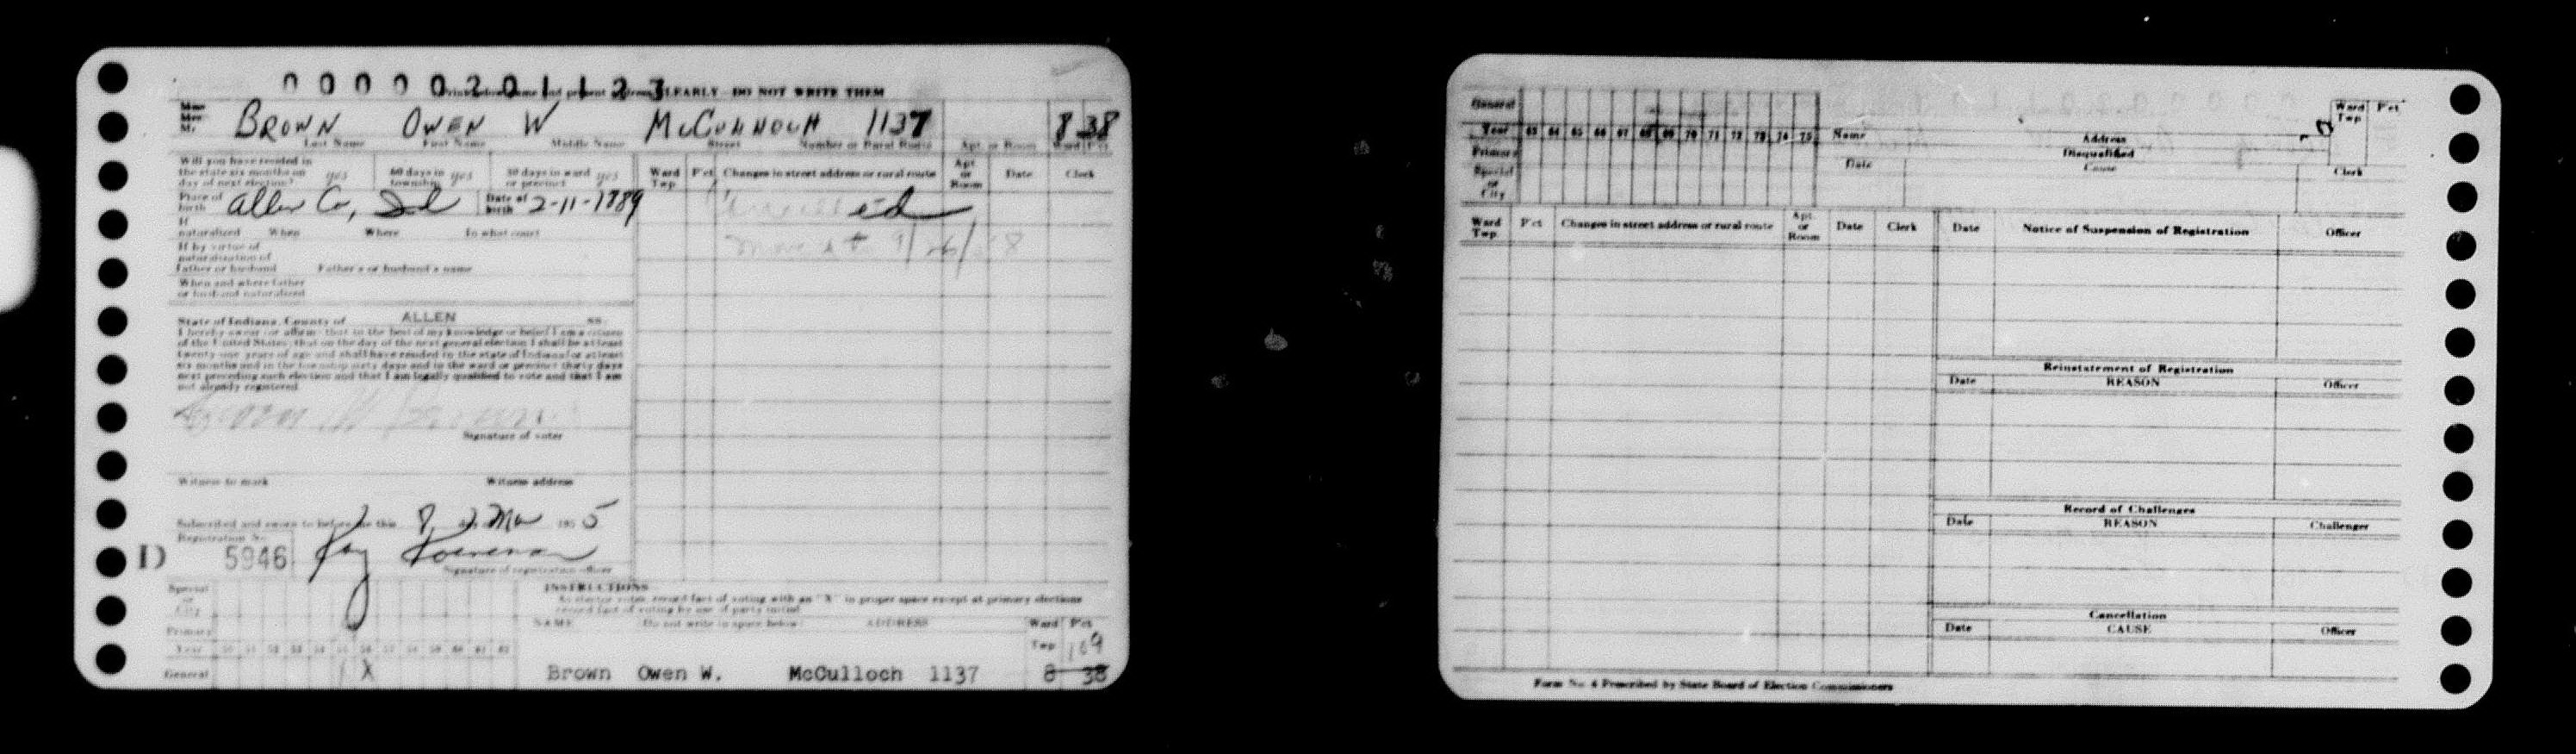 0 0 0 0 0 2 0 1 1 2 3
CLEARLY DO NOT WRITE THEM
BROWN OWEN W McCULLOCH 1137 8 38
Last Name First Name Middle Name Street Number or Rural Route Apt. or Room Ward Pct
Will you have resided in the state six months on day of next election? yes 60 days in township yes 30 days in ward or precinct yes
Place of birth Allen Co, Ind Date of birth 2-11-1889
If naturalized When Where In what court
If by virtue of naturalization of Father or husband Father's or husband's name
When and where father or husband naturalized
Ward Twp Pct Changes in street address or rural route Apt. or Room Date Clerk
State of Indiana, County of ALLEN ss.
I hereby swear (or affirm) that to the best of my knowledge or belief I am a citizen
of the United States; that on the day of the next general election I shall be at least
twenty-one years of age and shall have resided in the state of Indiana for at least
six months and in the township sixty days and in the ward or precinct thirty days
next preceding such election and that I am legally qualified to vote and that I am
not already registered.
Signature of voter
Witness to mark Witness address
Subscribed and sworn to before me this 8 day Mar 195 5
Registration No.
D 5946
Signature of registration officer
Special or City
Primary
Year 50 51 52 53 54 55 56 57 58 59 60 61 62
General X
INSTRUCTIONS
As elector votes, record fact of voting with an "X" in proper space except at primary elections
record fact of voting by use of party initial
NAME (Do not write in space below) ADDRESS Ward Twp Pct
109
Brown Owen W. McCulloch 1137 8 38
General
Year 63 64 65 66 67 68 69 70 71 72 73 74 75
Primary
Special or City
Name Address Ward Twp Pct
Disqualified
Date Cause Clerk
Ward Twp. Pct Changes in street address or rural route Apt. or Room Date Clerk
Date Notice of Suspension of Registration Officer
Reinstatement of Registration
Date REASON Officer
Record of Challenges
Date REASON Challenger
Cancellation
Date CAUSE Officer
Form No. 4 Prescribed by State Board of Election Commissioners